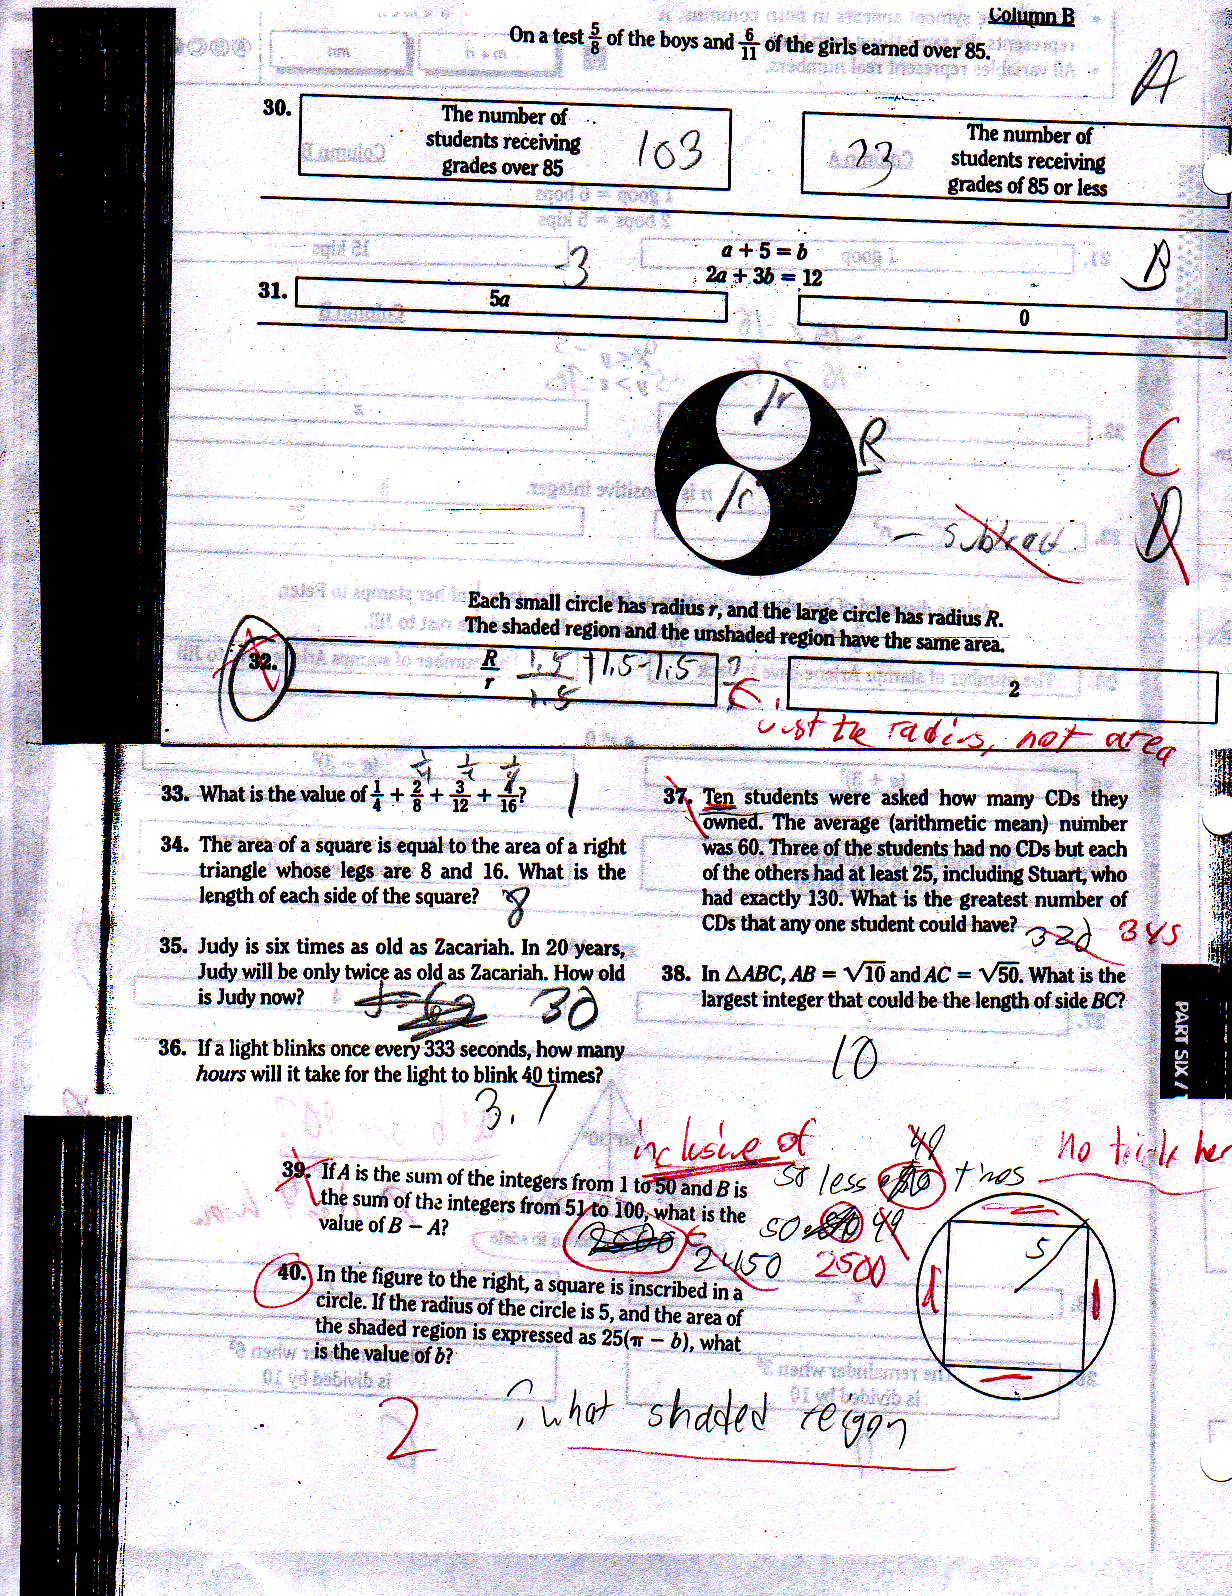 Column B
On a test 5/8 of the boys and 6/11 of the girls earned over 85.
A
30.
The number of
students receiving
grades over 85
103
23
The number of
students receiving
grades of 85 or less
a + 5 = b
2a + 3b = 12
B
-3
31.
5a
0
r
R
r
C
D
– subtract
Each small circle has radius r, and the large circle has radius R.
The shaded region and the unshaded region have the same area.
32.
R/r
2
just the radius, not area
33. What is the value of 1/4 + 2/8 + 3/12 + 4/16?
1/4 1/4 1/4
1
34. The area of a square is equal to the area of a right
triangle whose legs are 8 and 16. What is the
length of each side of the square?
8
35. Judy is six times as old as Zacariah. In 20 years,
Judy will be only twice as old as Zacariah. How old
is Judy now?
30
36. If a light blinks once every 333 seconds, how many
hours will it take for the light to blink 40 times?
3.7
37. Ten students were asked how many CDs they
owned. The average (arithmetic mean) number
was 60. Three of the students had no CDs but each
of the others had at least 25, including Stuart, who
had exactly 130. What is the greatest number of
CDs that any one student could have?
320 345
38. In △ABC, AB = √10 and AC = √50. What is the
largest integer that could be the length of side BC?
10
PART SIX /
inclusive of
39. If A is the sum of the integers from 1 to 50 and B is
the sum of the integers from 51 to 100, what is the
value of B − A?
49
50 less
50
49
2500
2450
2500
no trick her
40. In the figure to the right, a square is inscribed in a
circle. If the radius of the circle is 5, and the area of
the shaded region is expressed as 25(π − b), what
is the value of b?
5
2
? what shaded reigon